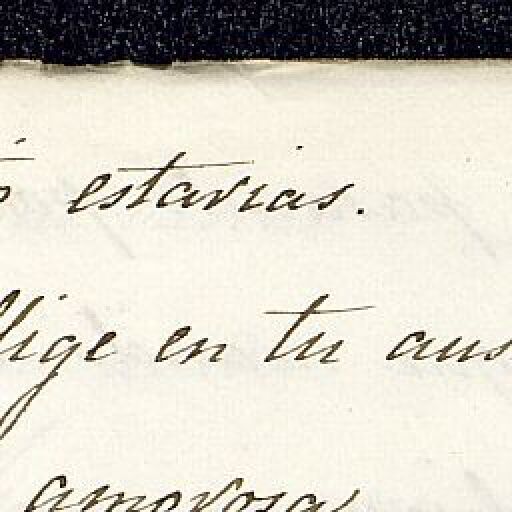 ó estavias.
flige en tu aus
amorosa